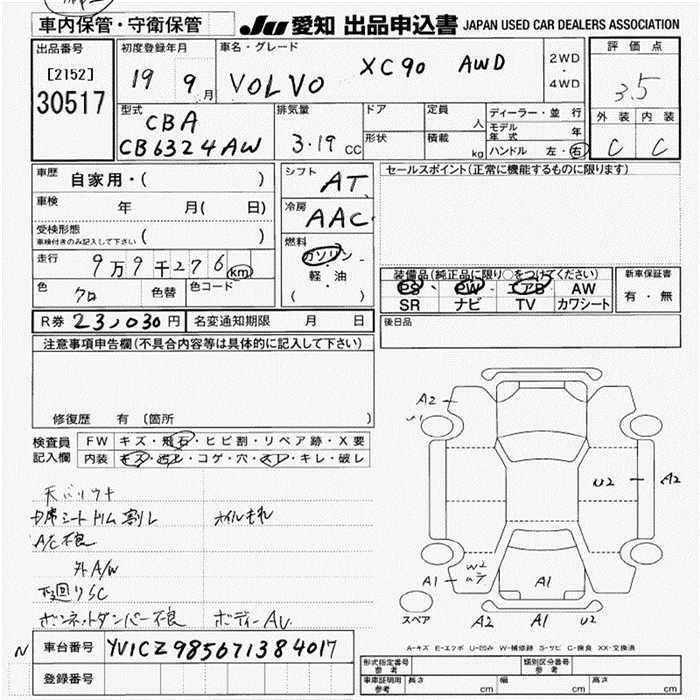 車内保管・守衛保管
JU 愛知 出品申込書 JAPAN USED CAR DEALERS ASSOCIATION
出品番号
[2152]
30517
初度登録年月
19 9月
車名・グレード
VOLVO XC90 AWD
2WD
・
4WD
評価点
3.5
外装 内装
C C
型式
CBA
CB6324AW
排気量
3.19 CC
ドア
形状
定員
人
積載
kg
ディーラー・並 行
モデル年式 年
ハンドル 左・右
車歴
自家用・( )
車検
年 月( 日)
受検形態
車検付きのみ記入して下さい ( )
走行
9万9千276km
色
クロ
色替
色コード
シフト
AT
冷房
AAC
燃料
ガソリン
軽・油
( )
セールスポイント(正常に機能するものに限ります)
装備品(純正品に限り○をつけてください)
PS・PW・エアB AW
SR ナビ TV カワシート
新車保証書
有・無
R券 23,030円
名変通知期限 月 日
後日品
注意事項申告欄(不具合内容等は具体的に記入して下さい)
修復歴 有 〔箇所 〕
検査員
記入欄
FW キズ・飛石・ヒビ割・リペア跡・X要
内装 キズ・汚レ・コゲ・穴・スレ・キレ・破レ
シートトリム割レ オイルもれ
A/C不良
外A/W
下廻りSC
ボンネットダンパー不良 ボディーAU
A2
U2
A2
W2
A1
A1
A2 A1 U2
スペア
N 車台番号 YV1CZ985671384017
登録番号
A-キズ E-エクボ U-凹み W-補修跡 S-サビ C-腐食 XX-交換済
形式指定番号
参考
類別区分番号
参考
車庫証明用
参考
長さ cm 幅 cm 高さ cm